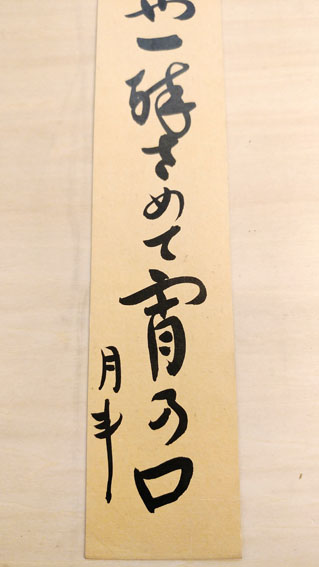 一酔さめて宵乃口
月斗